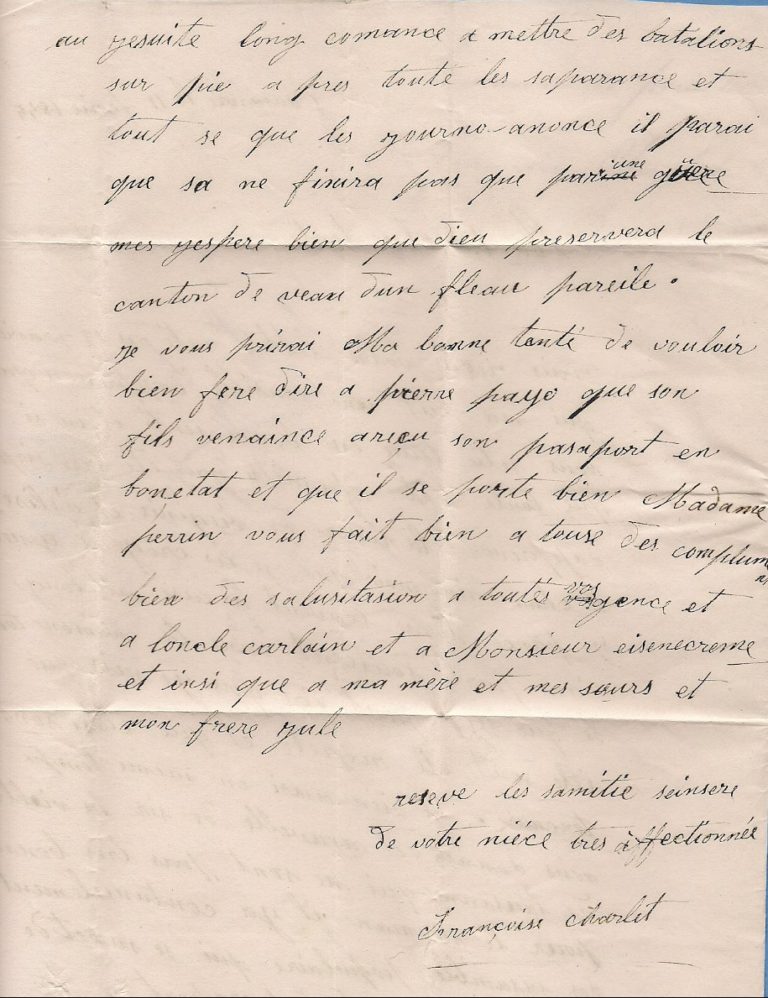 au yesuite long comance a mettre des batalions
sur pie a pres toute les saparance et
tout se que les yourno anonce il parai
que sa ne finira pas que par une guere
mes yespere bien que dieu preservera le
canton de veau dun fleau pareile.
ye vous prirai Ma bonne tante de vouloir
bien fere dire a pierre payo que son
fils venaince areçu son pasaport en
bonetat et que il se porte bien Madame
perrin vous fait bien a touse des complum
bien des salusitasion a toutés vos gence et
a loncle carlouin et a Monsieur eisenecreme
et insi que a ma mère et mes sœurs et
mon frere yule
reseve les samitie seinsere
de votre niéce tres affectionnée
Françoise Charlet